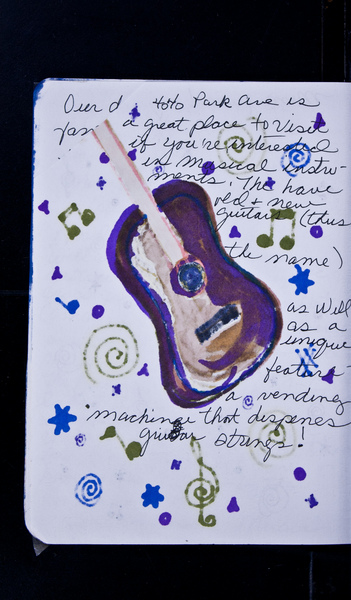 Oued d 4040 Park Ave is
a great place to visit
if you're interested
in musical instru-
ments. The have
old + new
guitars (thus
the name)
as well
as a
unique
feature -
a vending
machine that dispenes
guitar strings!